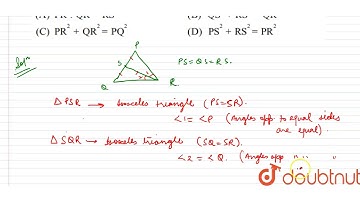 (C) PR² + QR² = PQ²
(D) PS² + RS² = PR²
Solⁿ
P
S
Q
R
PS = QS = RS.
△ PSR → Isosceles triangle (PS=SR).
∠1 = ∠P (Angles opp. to equal sides
are equal).
△ SQR → Isosceles triangle (SQ=SR).
∠2 = ∠Q. (Angles opp
doubtnut